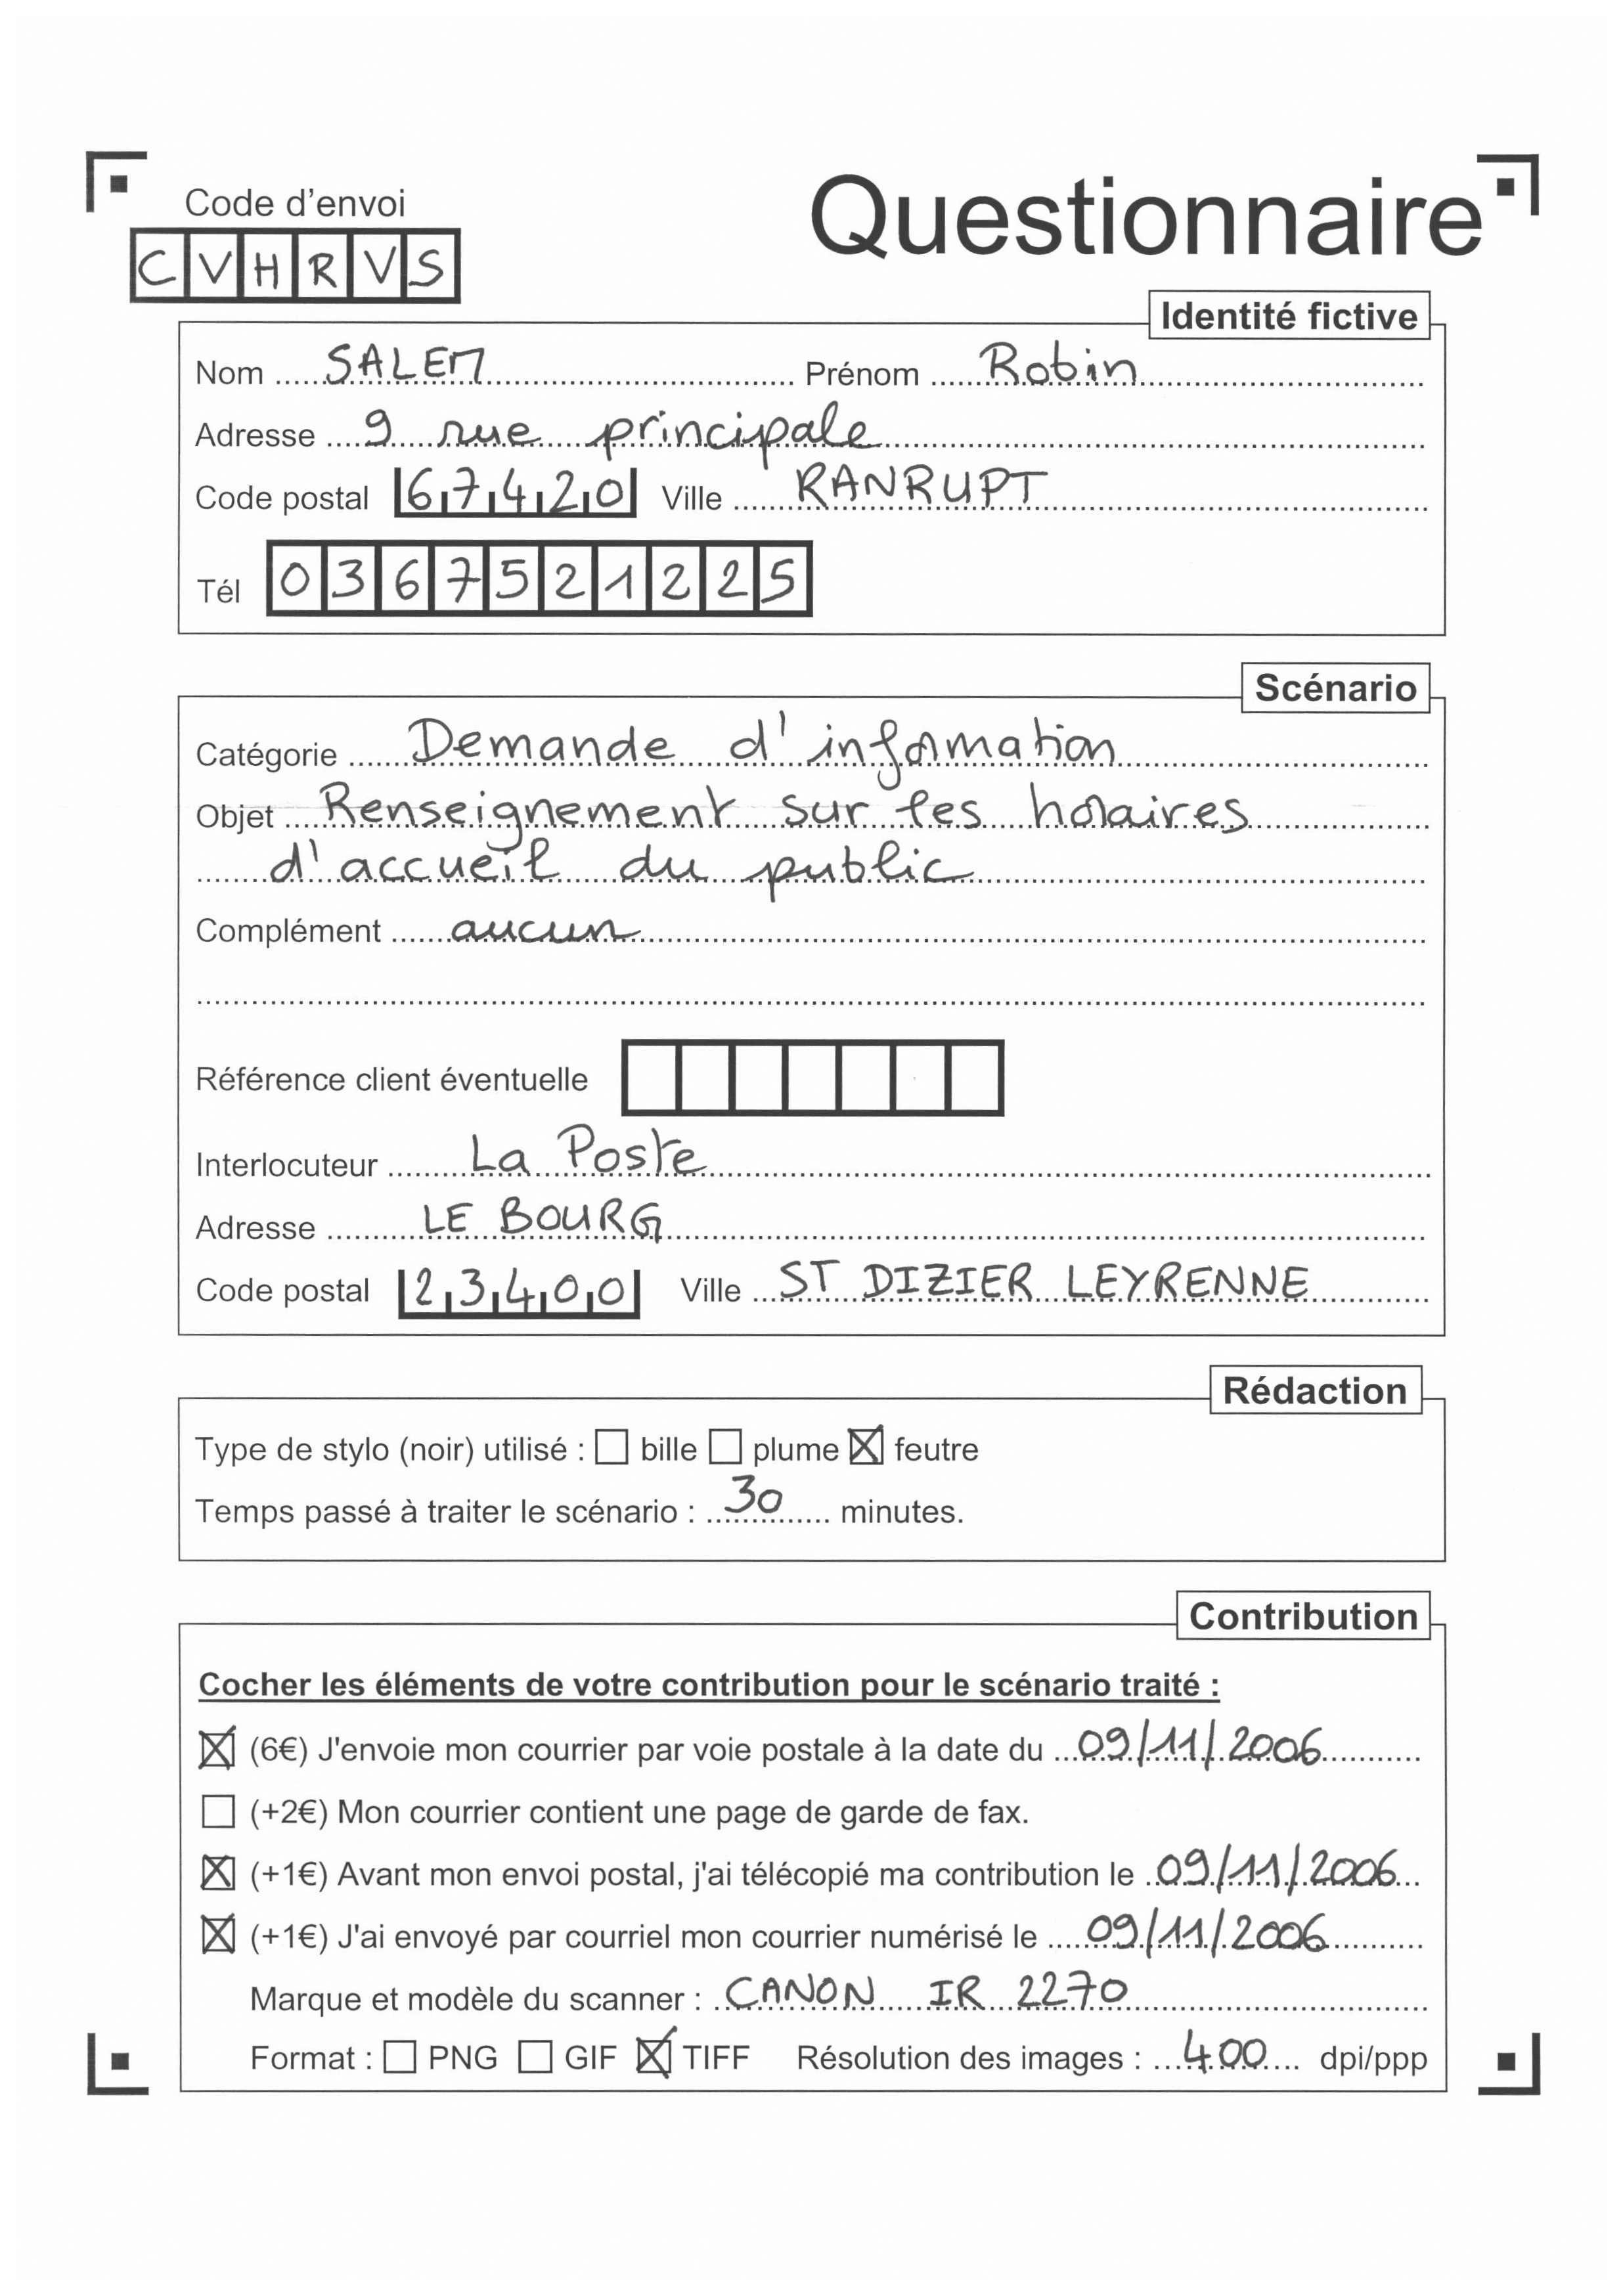 Code d'envoi
Questionnaire
C V H R V S
Identité fictive
Nom SALEM Prénom Robin
Adresse 9 rue principale
Code postal 67420 Ville RANRUPT
Tél 0367521225
Scénario
Catégorie Demande d'information
Objet Renseignement sur les horaires
d'accueil du public
Complément aucun
Référence client éventuelle
Interlocuteur La Poste
Adresse LE BOURG
Code postal 23400 Ville ST DIZIER LEYRENNE
Rédaction
Type de stylo (noir) utilisé : ☐ bille ☐ plume ☒ feutre
Temps passé à traiter le scénario : 30 minutes.
Contribution
Cocher les éléments de votre contribution pour le scénario traité :
☒ (6€) J'envoie mon courrier par voie postale à la date du 09/11/2006
☐ (+2€) Mon courrier contient une page de garde de fax.
☒ (+1€) Avant mon envoi postal, j'ai télécopié ma contribution le 09/11/2006
☒ (+1€) J'ai envoyé par courriel mon courrier numérisé le 09/11/2006
Marque et modèle du scanner : CANON IR 2270
Format : ☐ PNG ☐ GIF ☒ TIFF Résolution des images : 400 dpi/ppp